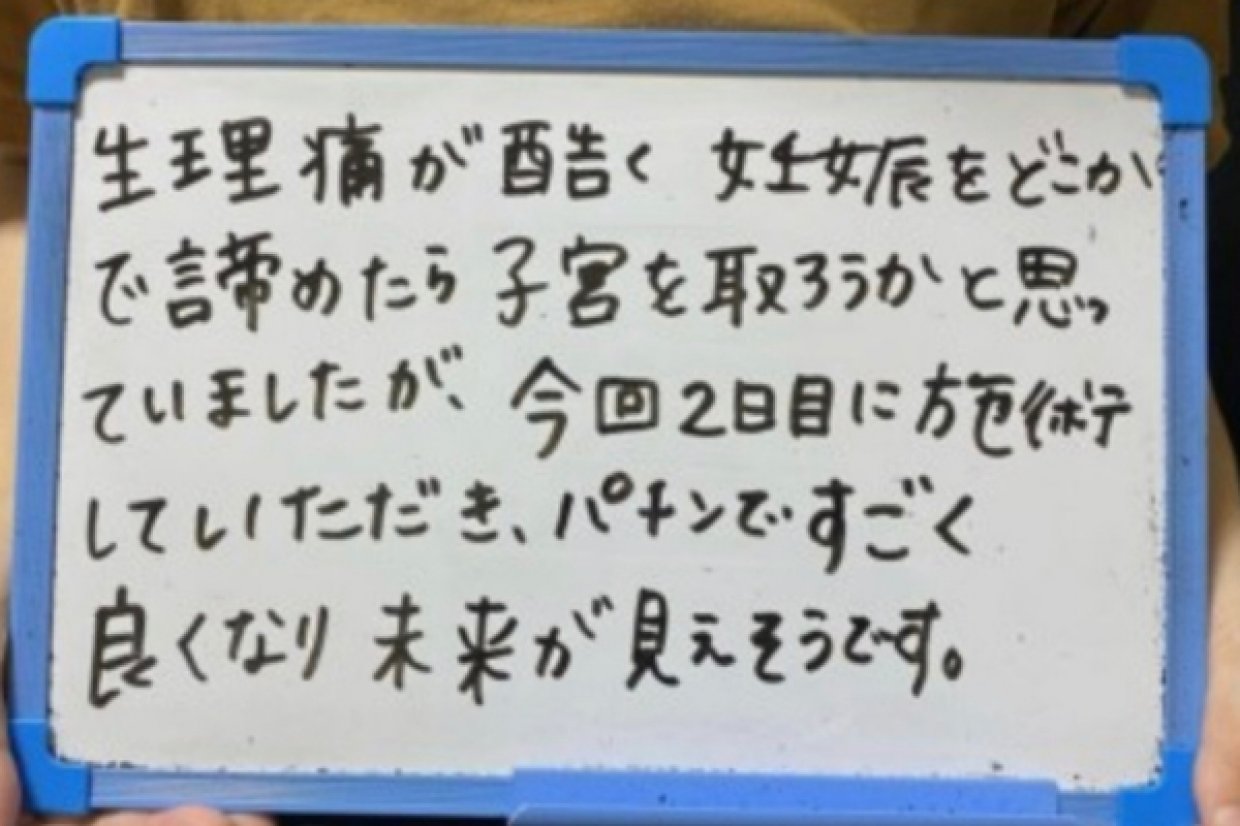 生理痛が酷く 妊娠をどこか
で諦めたら 子宮を取ろうかと思っ
ていましたが、今回2日目に施術
していただき、パチンですごく
良くなり 未来が見えそうです。